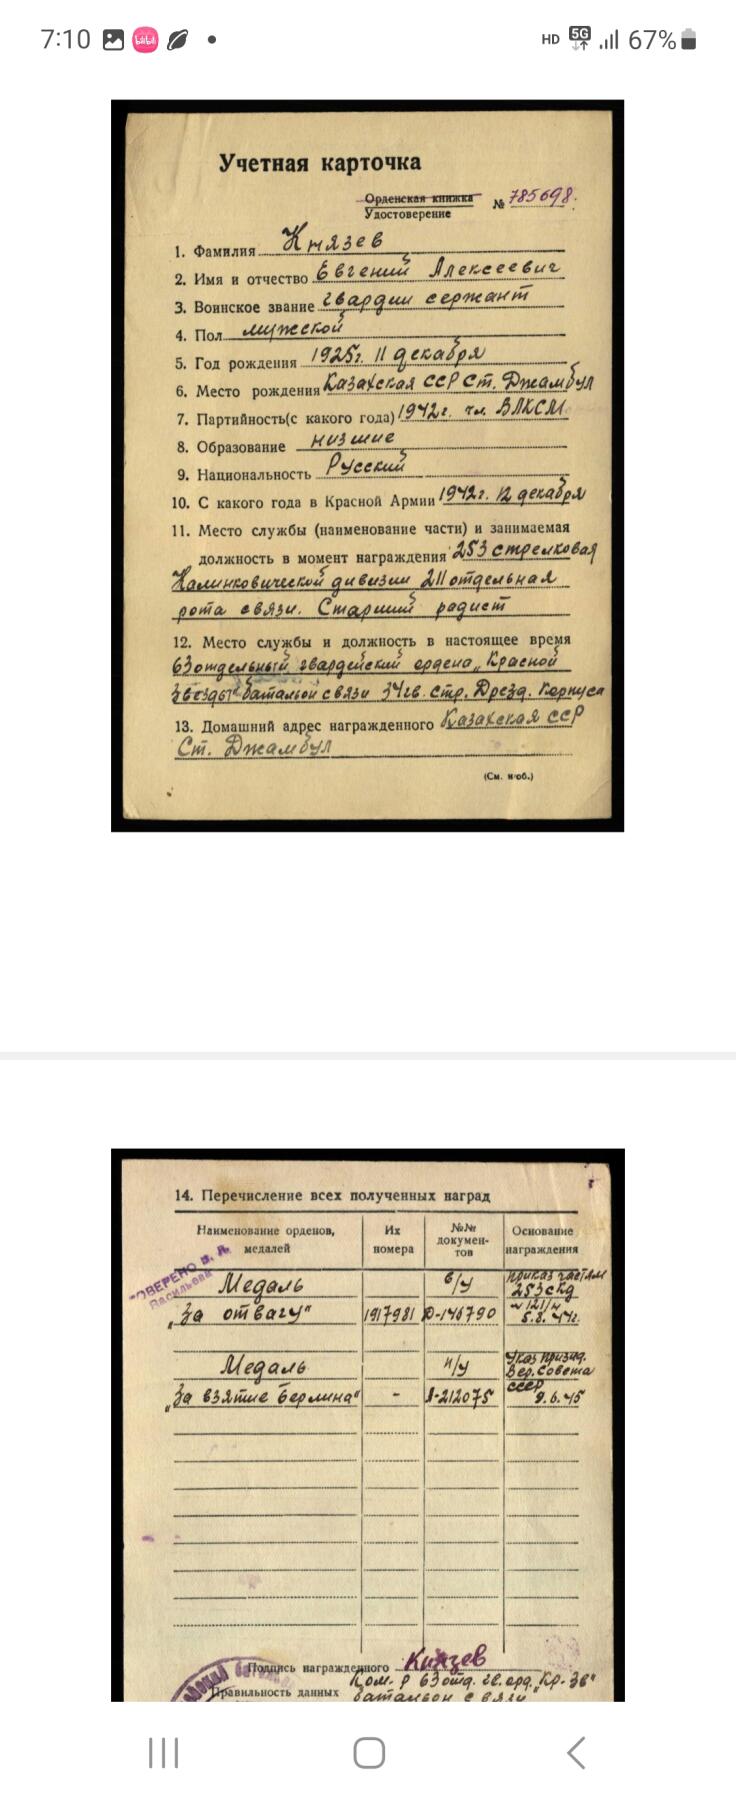 7:10
HD 5G 67%
Учетная карточка
Орденская книжка
Удостоверение
№ 785698.
1. Фамилия Князев
2. Имя и отчество Евгений Алексеевич
3. Воинское звание гвардии сержант
4. Пол мужской
5. Год рождения 1925г. 11 декабря
6. Место рождения Казахская ССР Ст. Джамбул
7. Партийность(с какого года) 1942г. чл. ВЛКСМ
8. Образование низшие
9. Национальность Русский
10. С какого года в Красной Армии 1942г. 12 декабря
11. Место службы (наименование части) и занимаемая
должность в момент награждения 253 стрелковая
Калинковической дивизии 211 отдельная
рота связи. Старший радист
12. Место службы и должность в настоящее время
63 отдельный гвардейский ордена „Красной
Звезды" батальон связи 34 гв. Стр. Дрезд. Корпуса
13. Домашний адрес награжденного Казахская ССР
Ст. Джамбул
(См. н/об.)
14. Перечисление всех полученных наград
Наименование орденов, медалей
Их номера
№№ документов
Основание награждения
Медаль б/у приказ частям 253 скд
„За отвагу" 1917981 № 121/н 5.8.44г.
Медаль н/у Указ Презид. Вер. Совета
„За взятие Берлина" - А-212075 СССР 9.6.45
Васильева
Подпись награжденного Князев
Правильность данных Ком. р 63 отд. гв. орд. „Кр. Зв"
батальон связи